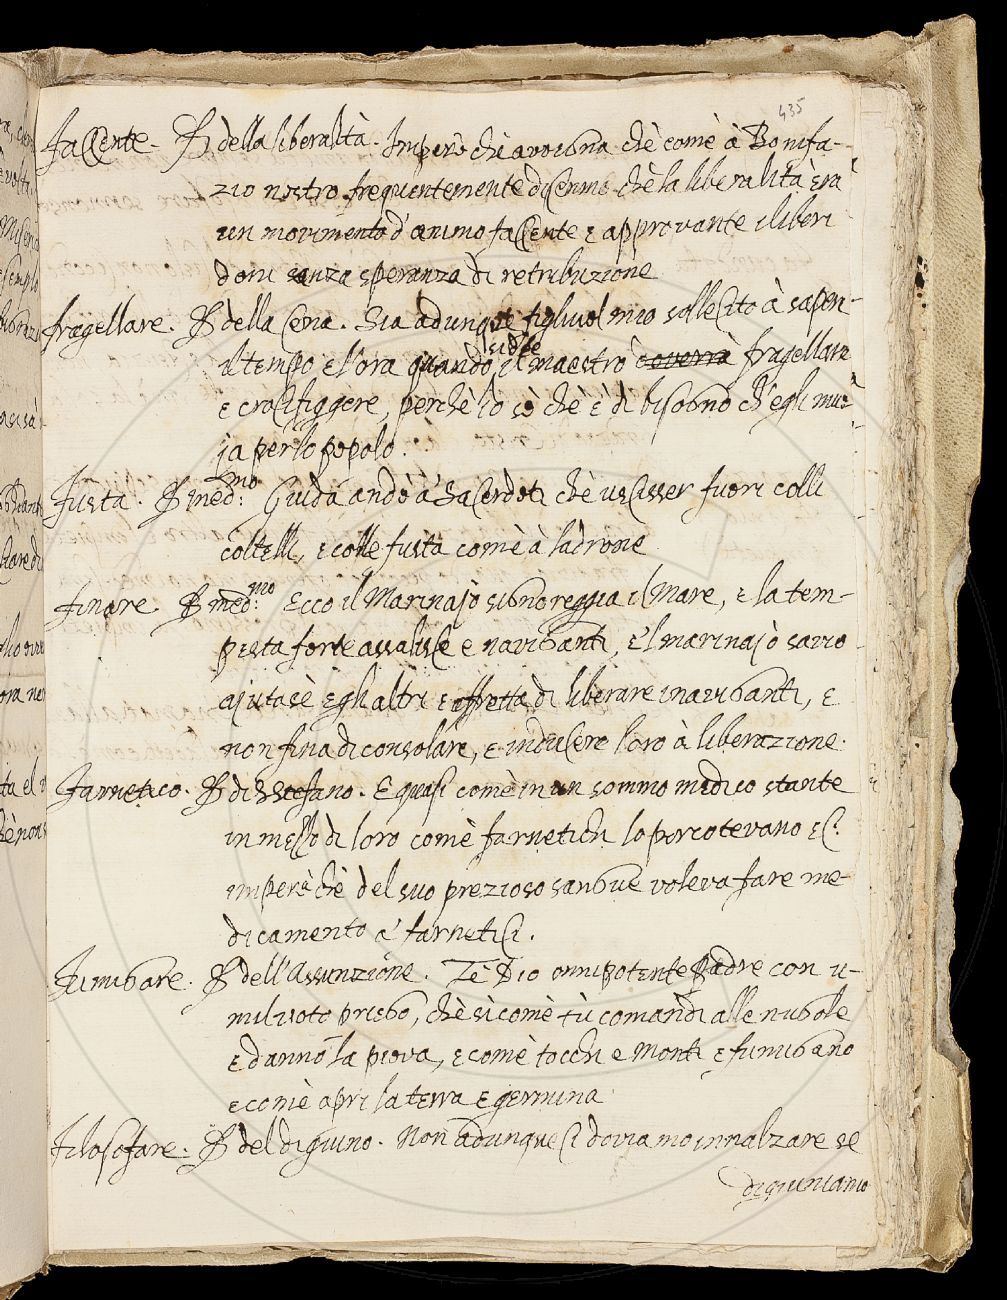 435
Faccente. P. della liberalità. Imperò chè avvegna chè come à Bonifa-
zio nostro frequentemente dicemmo chè la liberalità era
un movimento d'animo faccente e approvante i liberi
doni sanza speranza di retribuzione
fragellare. P. della Cena. Sia adunque figliuol mio sollecito à saper
il tempo e l'ora quando il maestro si dee fragellare
e crocifiggere, perchè io sò chè è di bisogno ch'egli muo-
ja per lo popolo.
Fusta. P. med:mo Guida andò a' Sacerdoti chè uscisser fuori colli
coltelli, e colle fusta come à ladrone
finare P. med:mo Ecco il Marinajo signoreggia il Mare, e la tem-
pesta forte assalisce e naviganti, e'l marinajo savio
ajuta sè e gli altri e affretta di liberare i naviganti, e
non fina di consolare, e inducere loro à liberazione.
Farnetico. P. di S Stefano. E quasi come in un sommo medico stante
in mezzo di loro come farnetichi lo percotevano ec.
imperò chè del suo prezioso sangue voleva fare me-
dicamento a' farnetici.
Fumigare. P. dell'Assunzione. Tè Dio onnipotente Padre con u-
mil voto priego, chè sì come tù comandi alle nugole
e danno la piova, e come tocchi e Monti e fumigano
e come apri la terra e germina
Filosofare. P. del digiuno. Non adunque ci doviamo innalzare se
digiuniamo